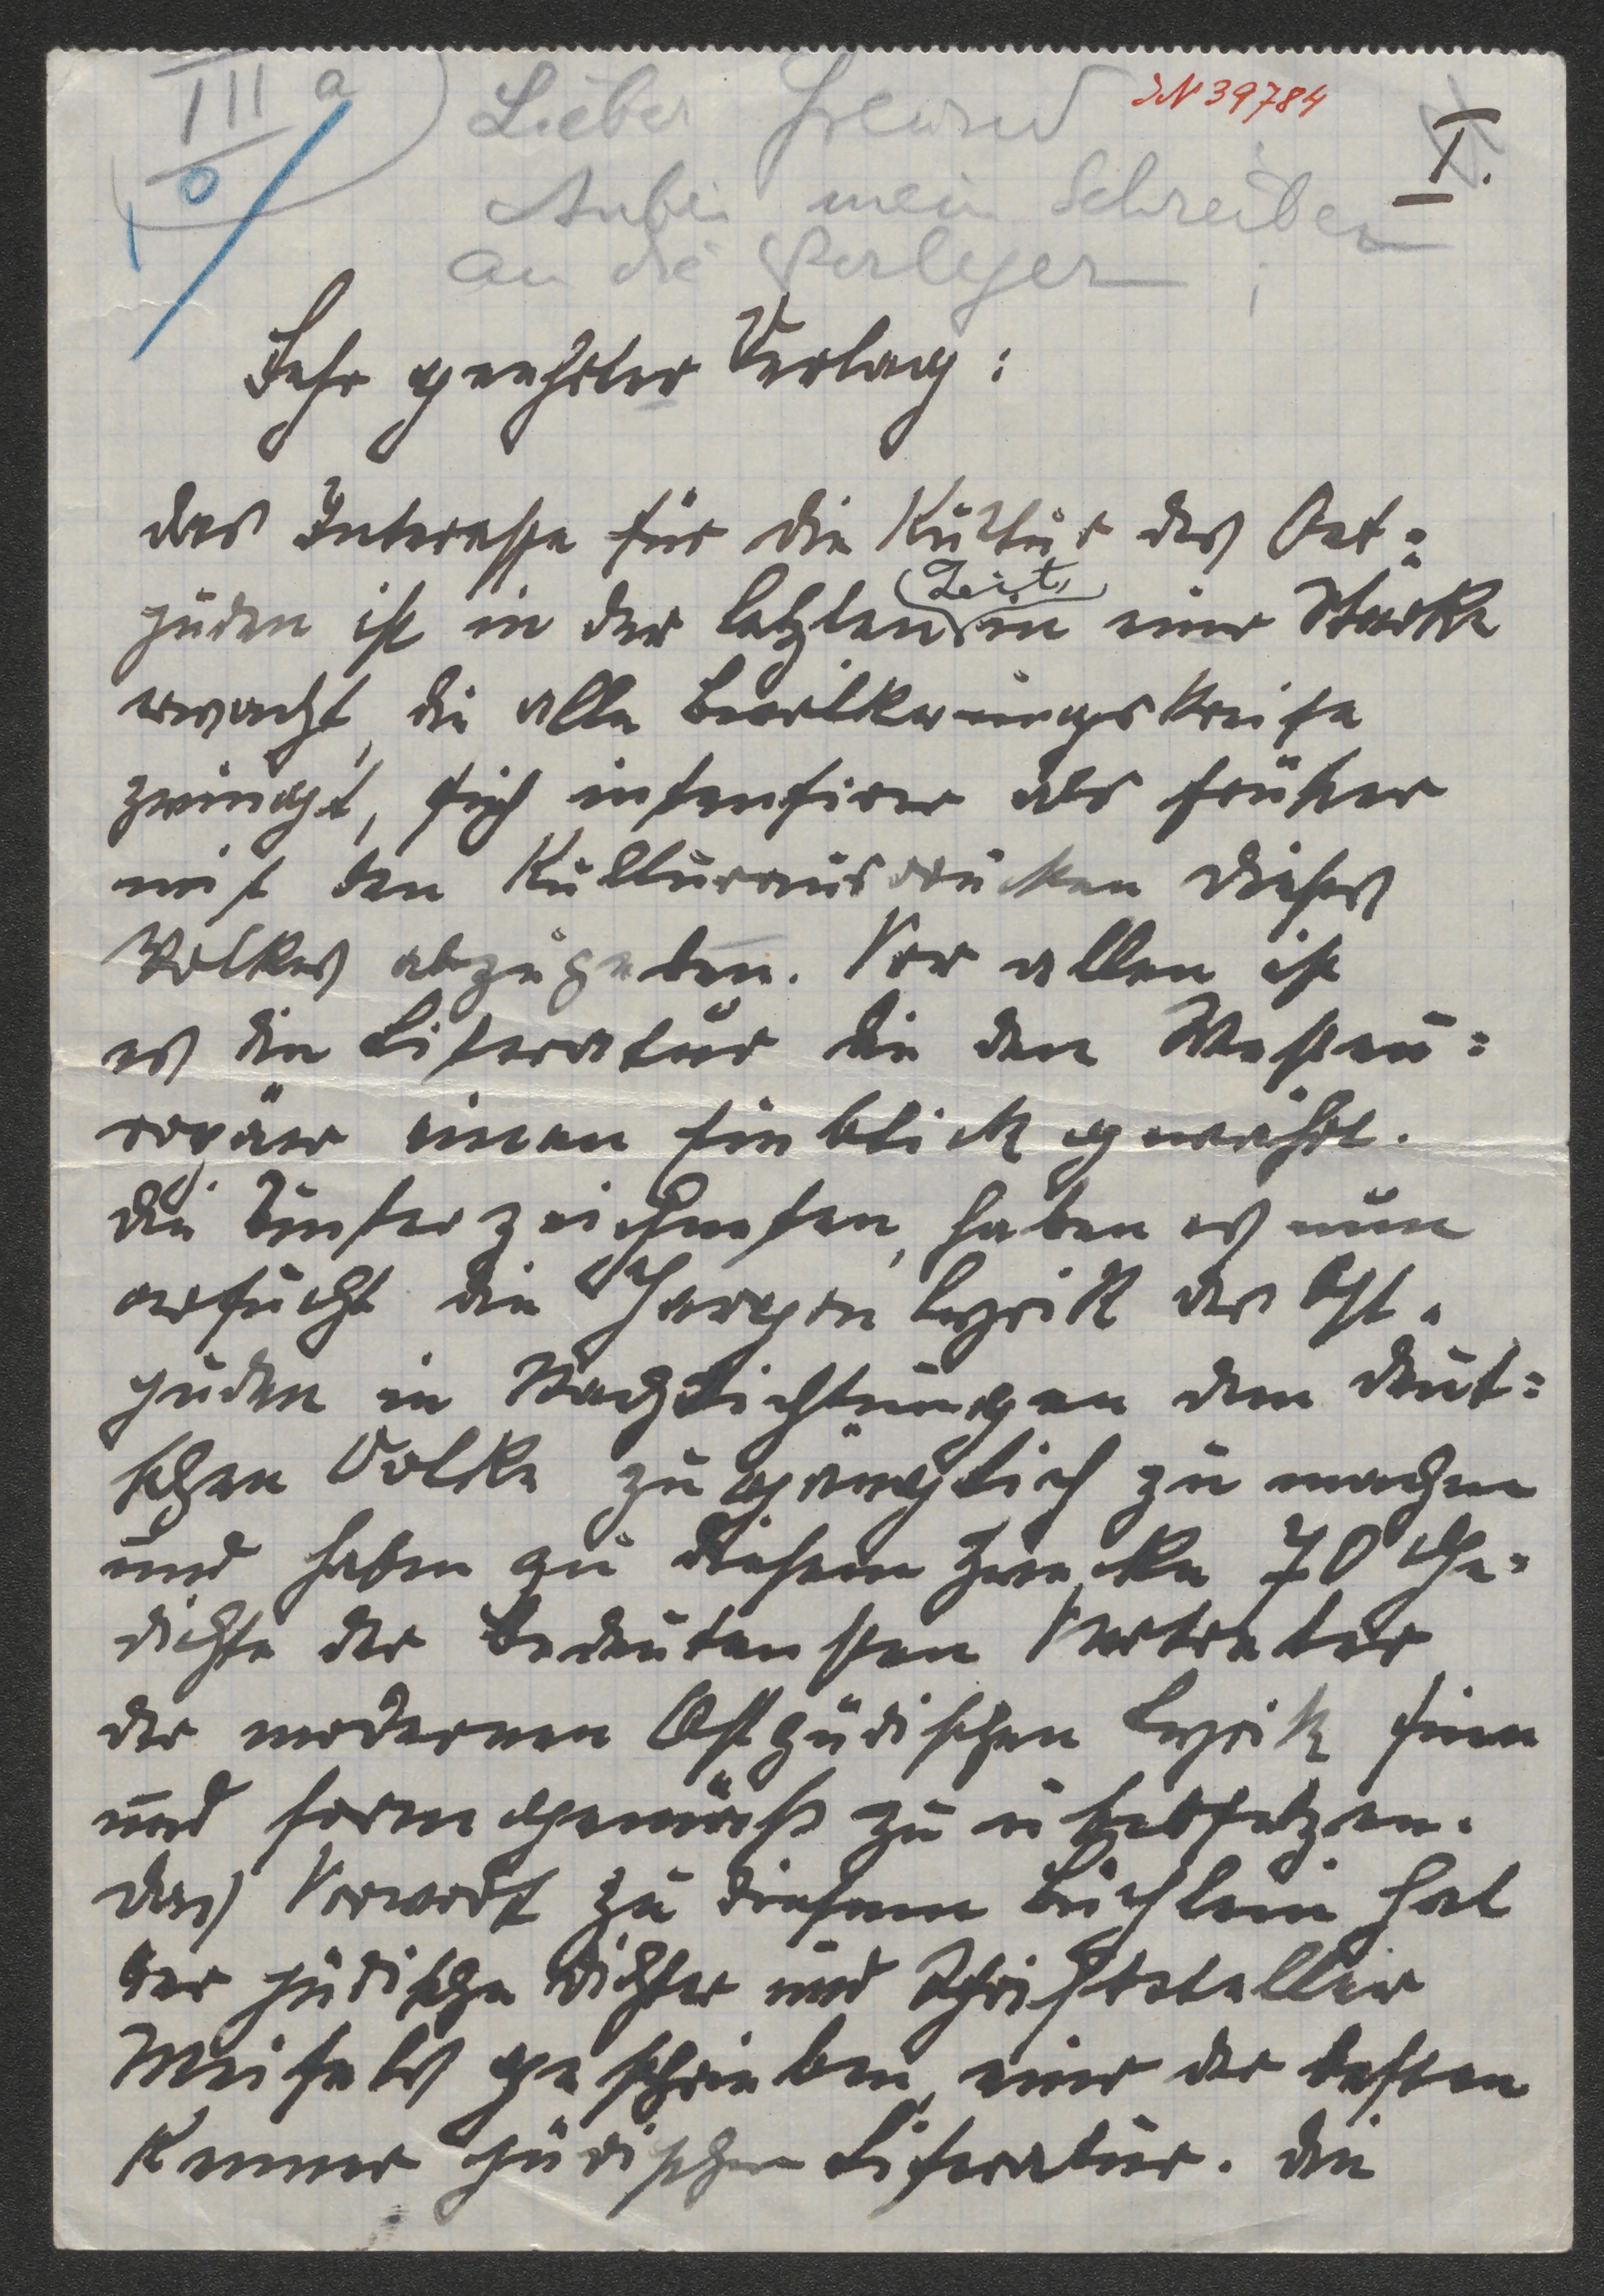 III a
0
IN 39784
I.
Lieber Freund
Anbei mein Schreiben
an die Verleger;
Sehr geehrter Verlag:
das Interesse für die Kultur des Ost=
juden ist in der letzten Zeit in einer Stärke
erwacht, die alle Bevölkerungskreise
zwingt, sich intensiver als früher
mit den Kulturausdrücken dieses
Volkes abzugeben. Vor allen ist
es die Literatur die den Westeu=
ropäer einen Einblick gewährt.
die Unterzeichneten, haben es nun
versucht die Jargonlyrik der Ost=
juden in Nachdichtungen dem deut=
schen Volke zugänglich zu machen
und haben zu diesem Zwecke 70 Ge=
dichte der bedeutensten Vertreter
der modernen Ostjüdischen Lyrik sinn
und formgemäß zu übersetzen.
das Vorwort zu diesem Büchlein hat
der jüdische Dichter und Schriftsteller
Meisels geschrieben, einer der besten
Kenner jüdischer Literatur. die